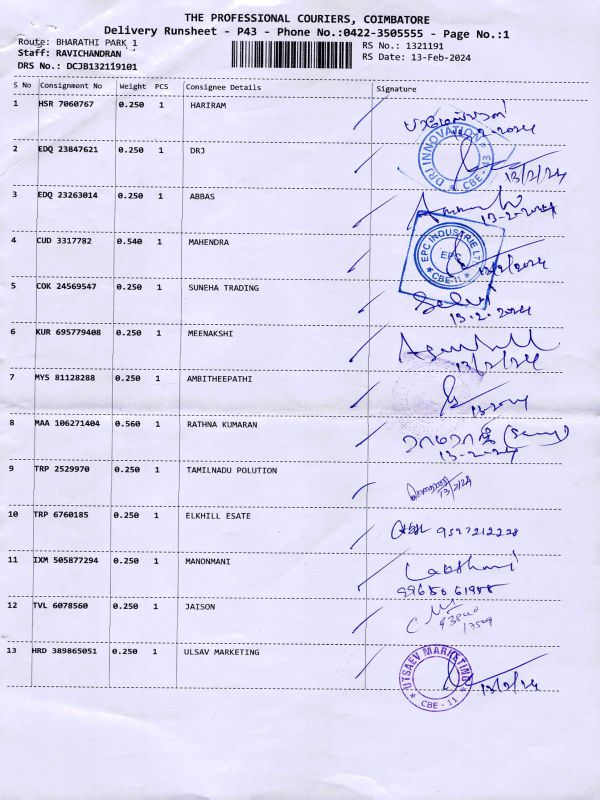 THE PROFESSIONAL COURIERS, COIMBATORE
Delivery Runsheet - P43 - Phone No.:0422-3505555 - Page No.:1
Route: BHARATHI PARK 1
RS No.: 1321191
Staff: RAVICHANDRAN
RS Date: 13-Feb-2024
DRS No.: DCJB132119101
S No Consignment No Weight PCS Consignee Details Signature
1 HSR 7060767 0.250 1 HARIRAM
13-2-2024
2 EDQ 23847621 0.250 1 DRJ
DRJ INNOVATION
CBE - 43
13/2/24
3 EDQ 23263014 0.250 1 ABBAS
13-2-2024
4 CUD 3317782 0.540 1 MAHENDRA
EPC INDUSTRIE LTD
EPC
CBE-11
13/2/2024
5 COK 24569547 0.250 1 SUNEHA TRADING
13-2-2024
6 KUR 695779408 0.250 1 MEENAKSHI
13/2/24
7 MYS 81128288 0.250 1 AMBITHEEPATHI
8 MAA 106271404 0.560 1 RATHNA KUMARAN
13-2-24
9 TRP 2529970 0.250 1 TAMILNADU POLUTION
13/2/24
10 TRP 6760185 0.250 1 ELKHILL ESATE
9597212228
11 IXM 505877294 0.250 1 MANONMANI
12 TVL 6078560 0.250 1 JAISON
13 HRD 389865051 0.250 1 ULSAV MARKETING
UTSAEV MARKETING
CBE - 11
13/2/24